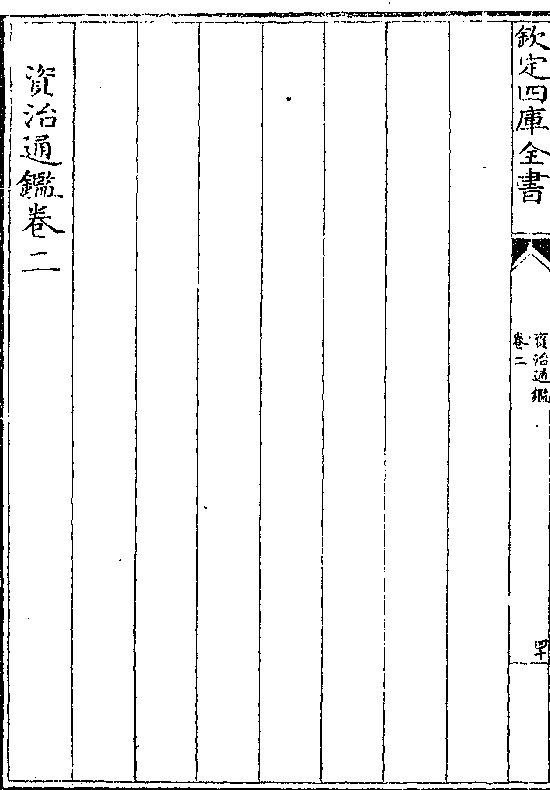 欽定四庫全書
資治通鑑
卷二
四十
資治通鑑卷二